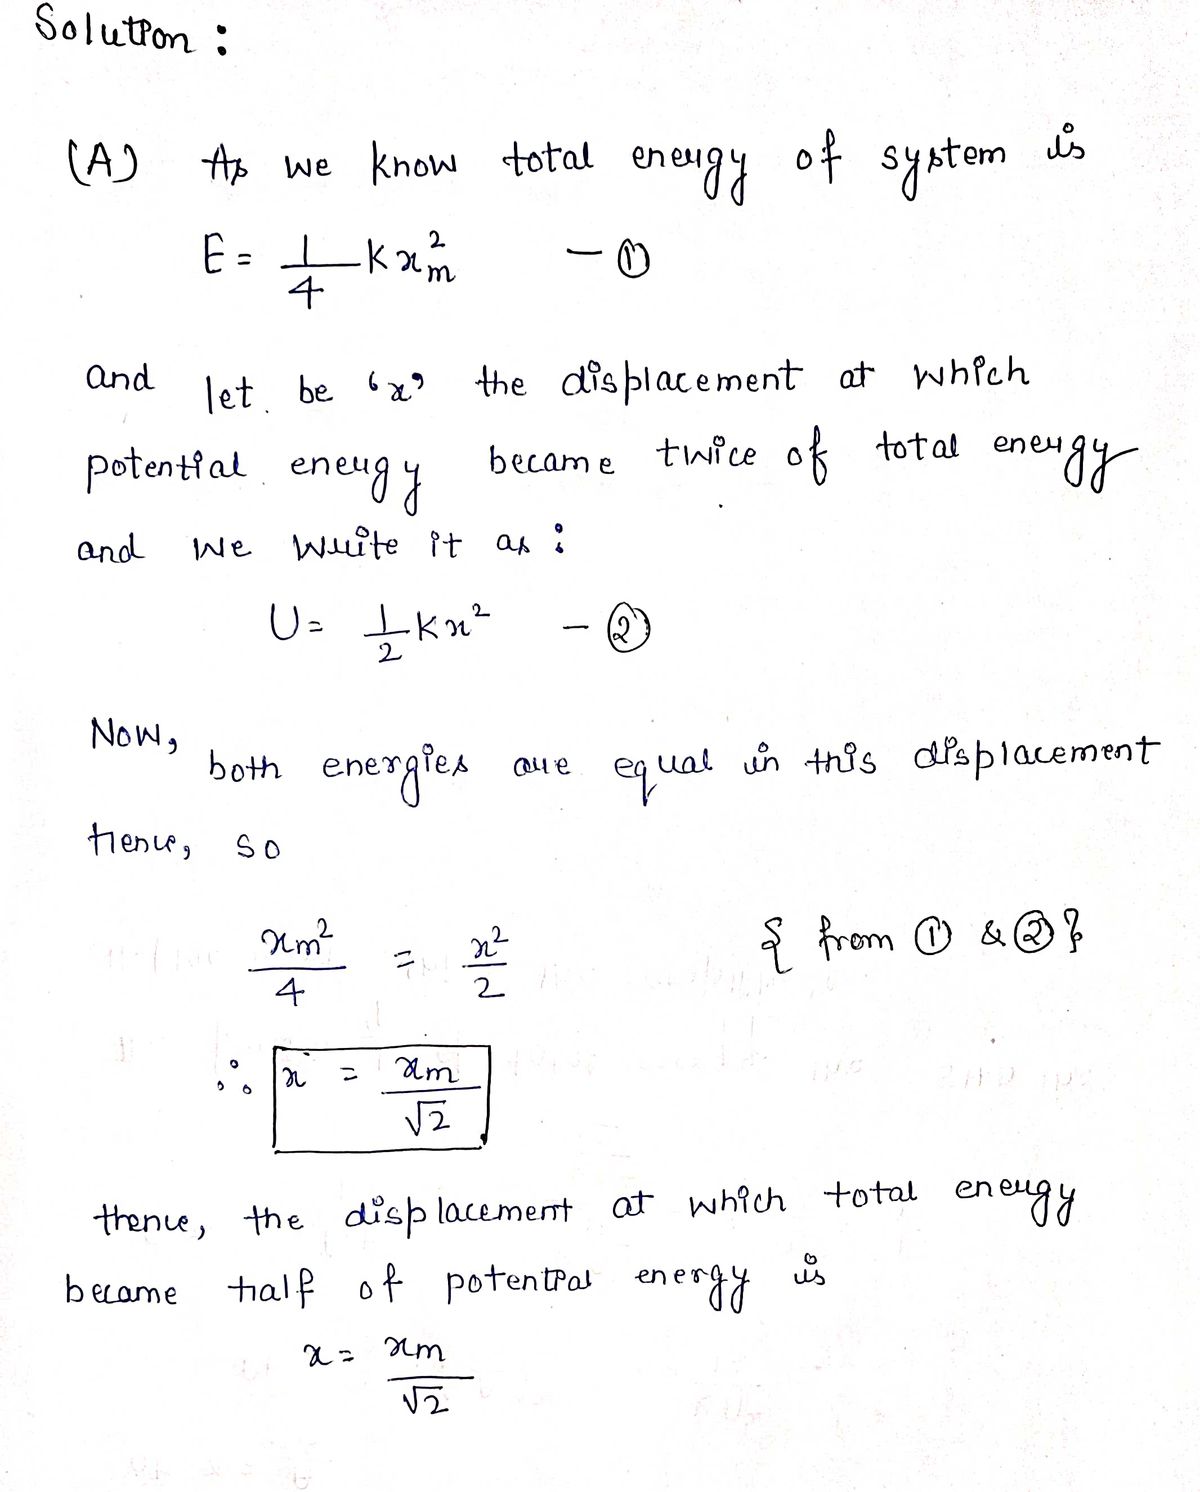 Solution :
(A) As we know total energy of system is
E = 1/4 k x_m^2 — ①
and let be 'x' the displacement at which
potential energy became twice of total energy
and we write it as :
U = 1/2 k x^2 — ②
Now,
both energies are equal in this displacement
Hence, so
x_m^2/4 = x^2/2 { from ① & ② }
∴ x = x_m/√2
Hence, the displacement at which total energy
became Half of potential energy is
x = x_m/√2